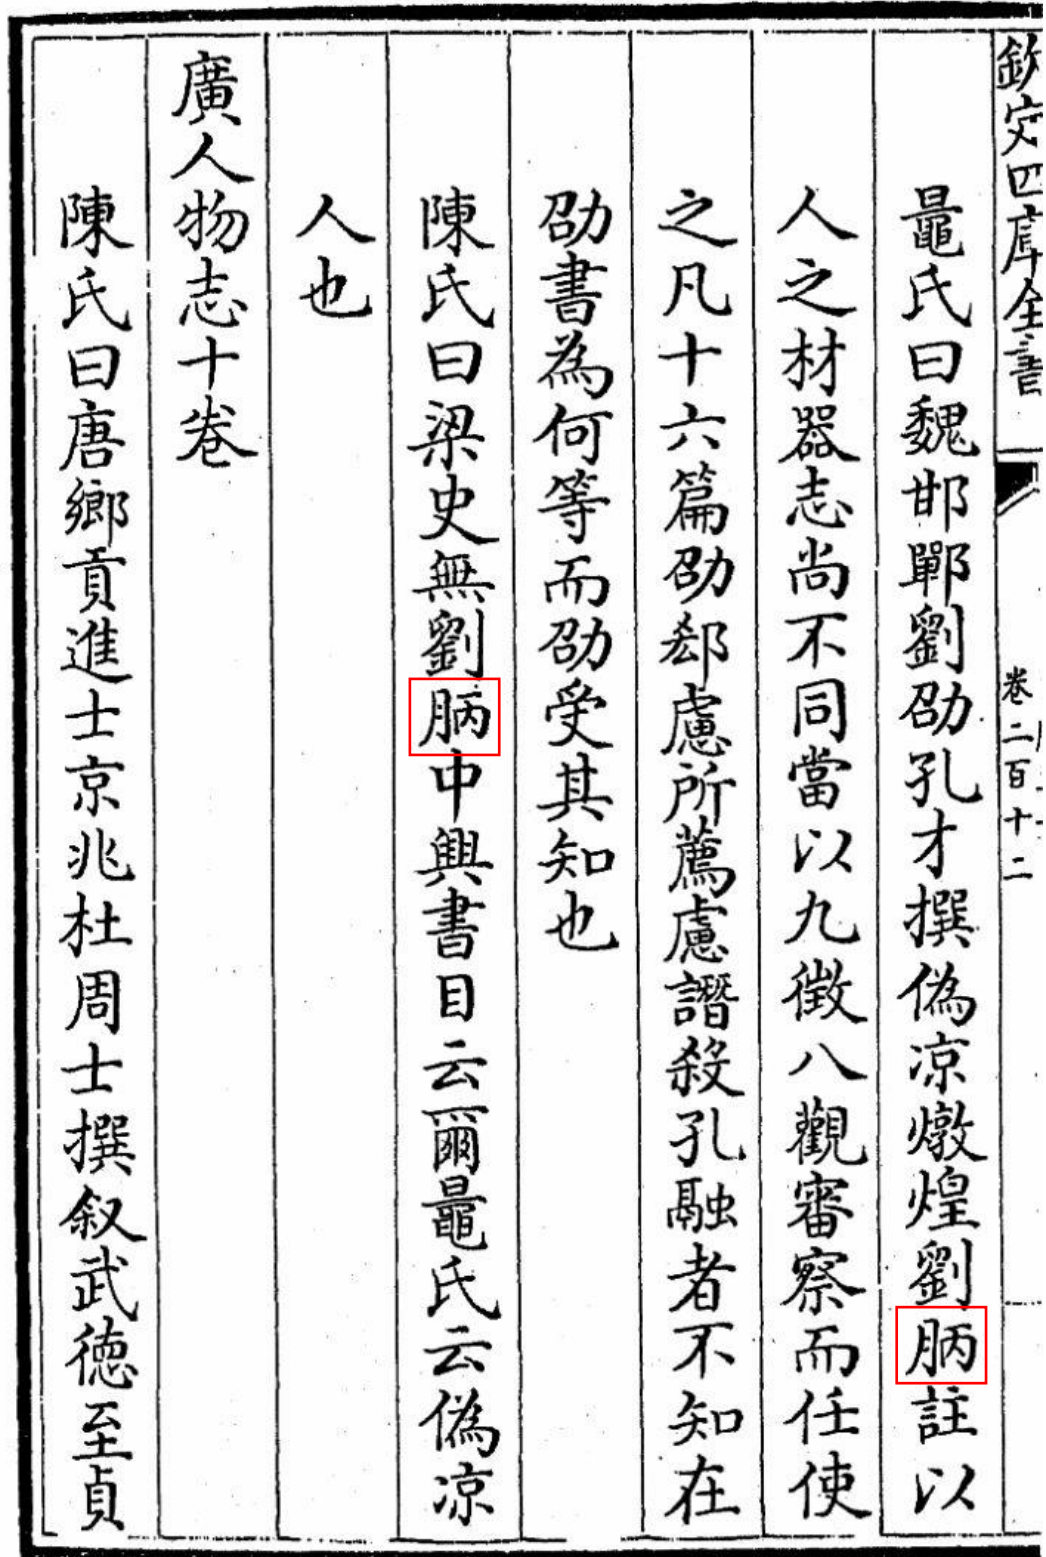 欽定四庫全書
卷二百十二
鼂氏曰魏邯鄲劉劭孔才撰偽凉燉煌劉昞註以
人之材器志尚不同當以九徵八觀審察而任使
之凡十六篇劭郄慮所薦慮譖殺孔融者不知在
劭書為何等而劭受其知也
陳氏曰梁史無劉昞中興書目云爾鼂氏云偽凉
人也
廣人物志十卷
陳氏曰唐鄉貢進士京兆杜周士撰叙武德至貞